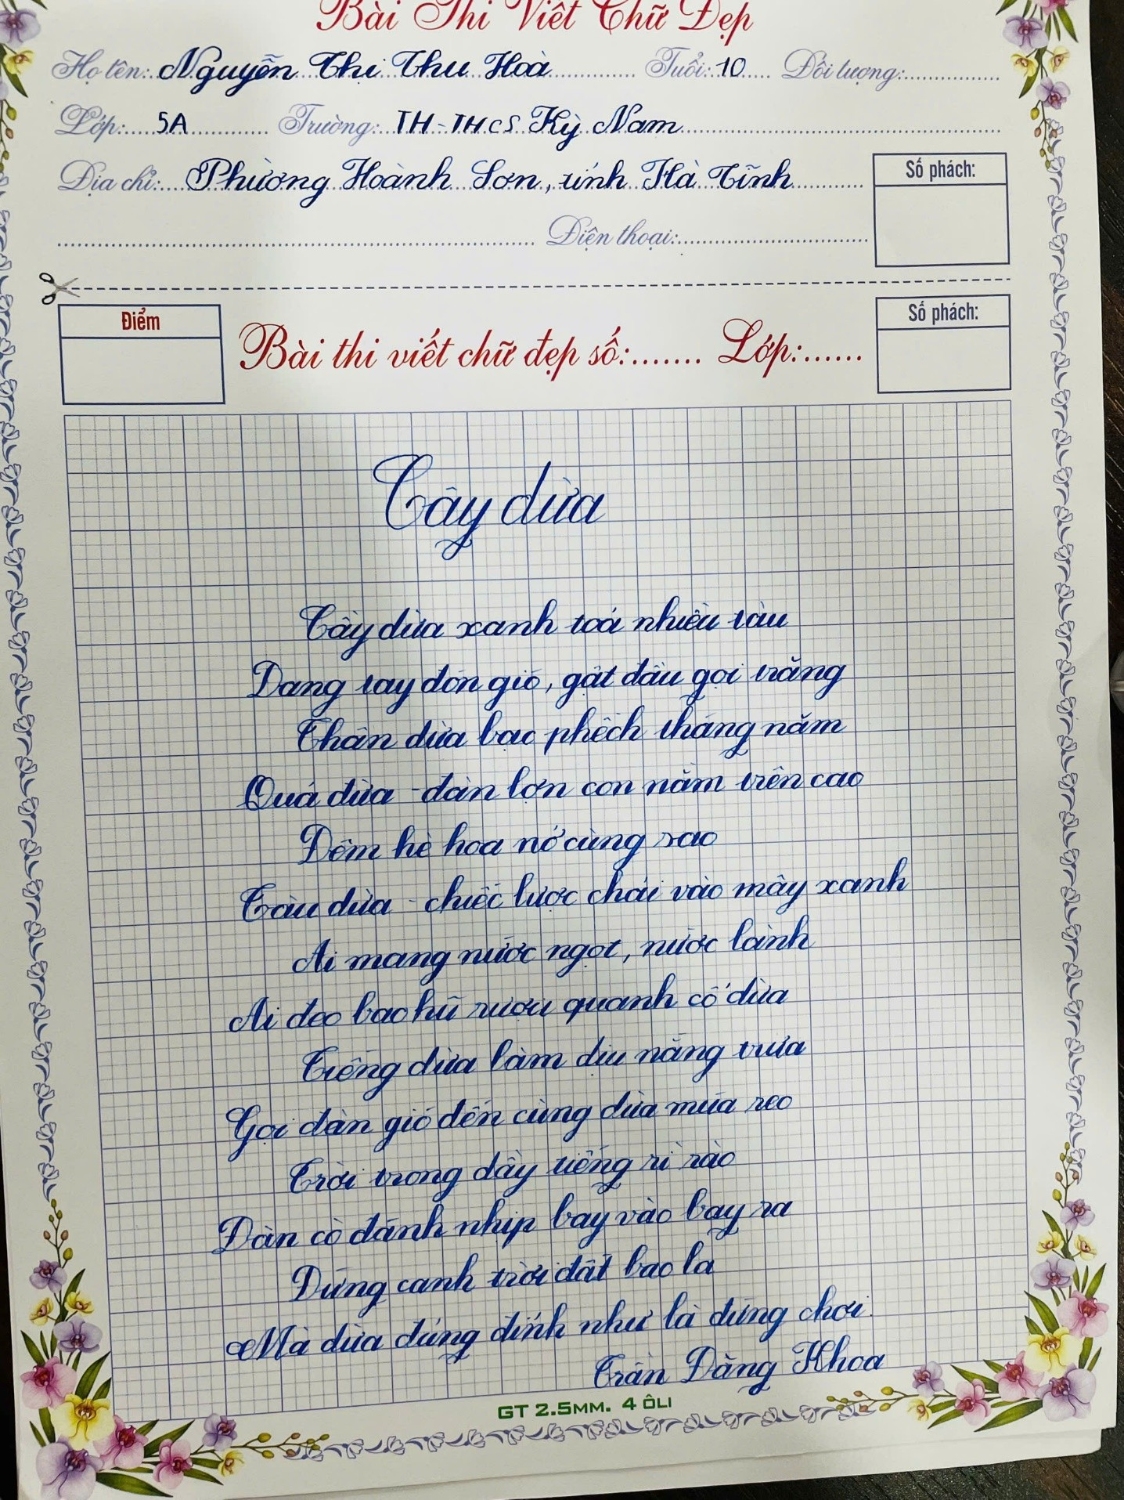 Bài Thi Viết Chữ Đẹp
Họ tên: Nguyễn Thị Thu Hoà Tuổi: 10 Đối tượng:
Lớp: 5A Trường: TH-THCS Kỳ Nam
Địa chỉ: Phường Hoành Sơn, tỉnh Hà Tĩnh
Số phách:
Điện thoại:
Điểm
Bài thi viết chữ đẹp số:....... Lớp:......
Số phách:
Cây dừa
Cây dừa xanh toả nhiều tàu
Dang tay đón gió, gật đầu gọi trăng
Thân dừa bạc phếch tháng năm
Quả dừa - đàn lợn con nằm trên cao
Đêm hè hoa nở cùng sao
Tàu dừa - chiếc lược chải vào mây xanh
Ai mang nước ngọt, nước lành
Ai đeo bao hũ rượu quanh cổ dừa
Tiếng dừa làm dịu nắng trưa
Gọi đàn gió đến cùng dừa múa reo
Trời trong đầy tiếng rì rào
Đàn cò đánh nhịp bay vào bay ra
Đứng canh trời đất bao la
Mà dừa đủng đỉnh như là đứng chơi.
Trần Đăng Khoa
GT 2.5MM. 4 ÔLI